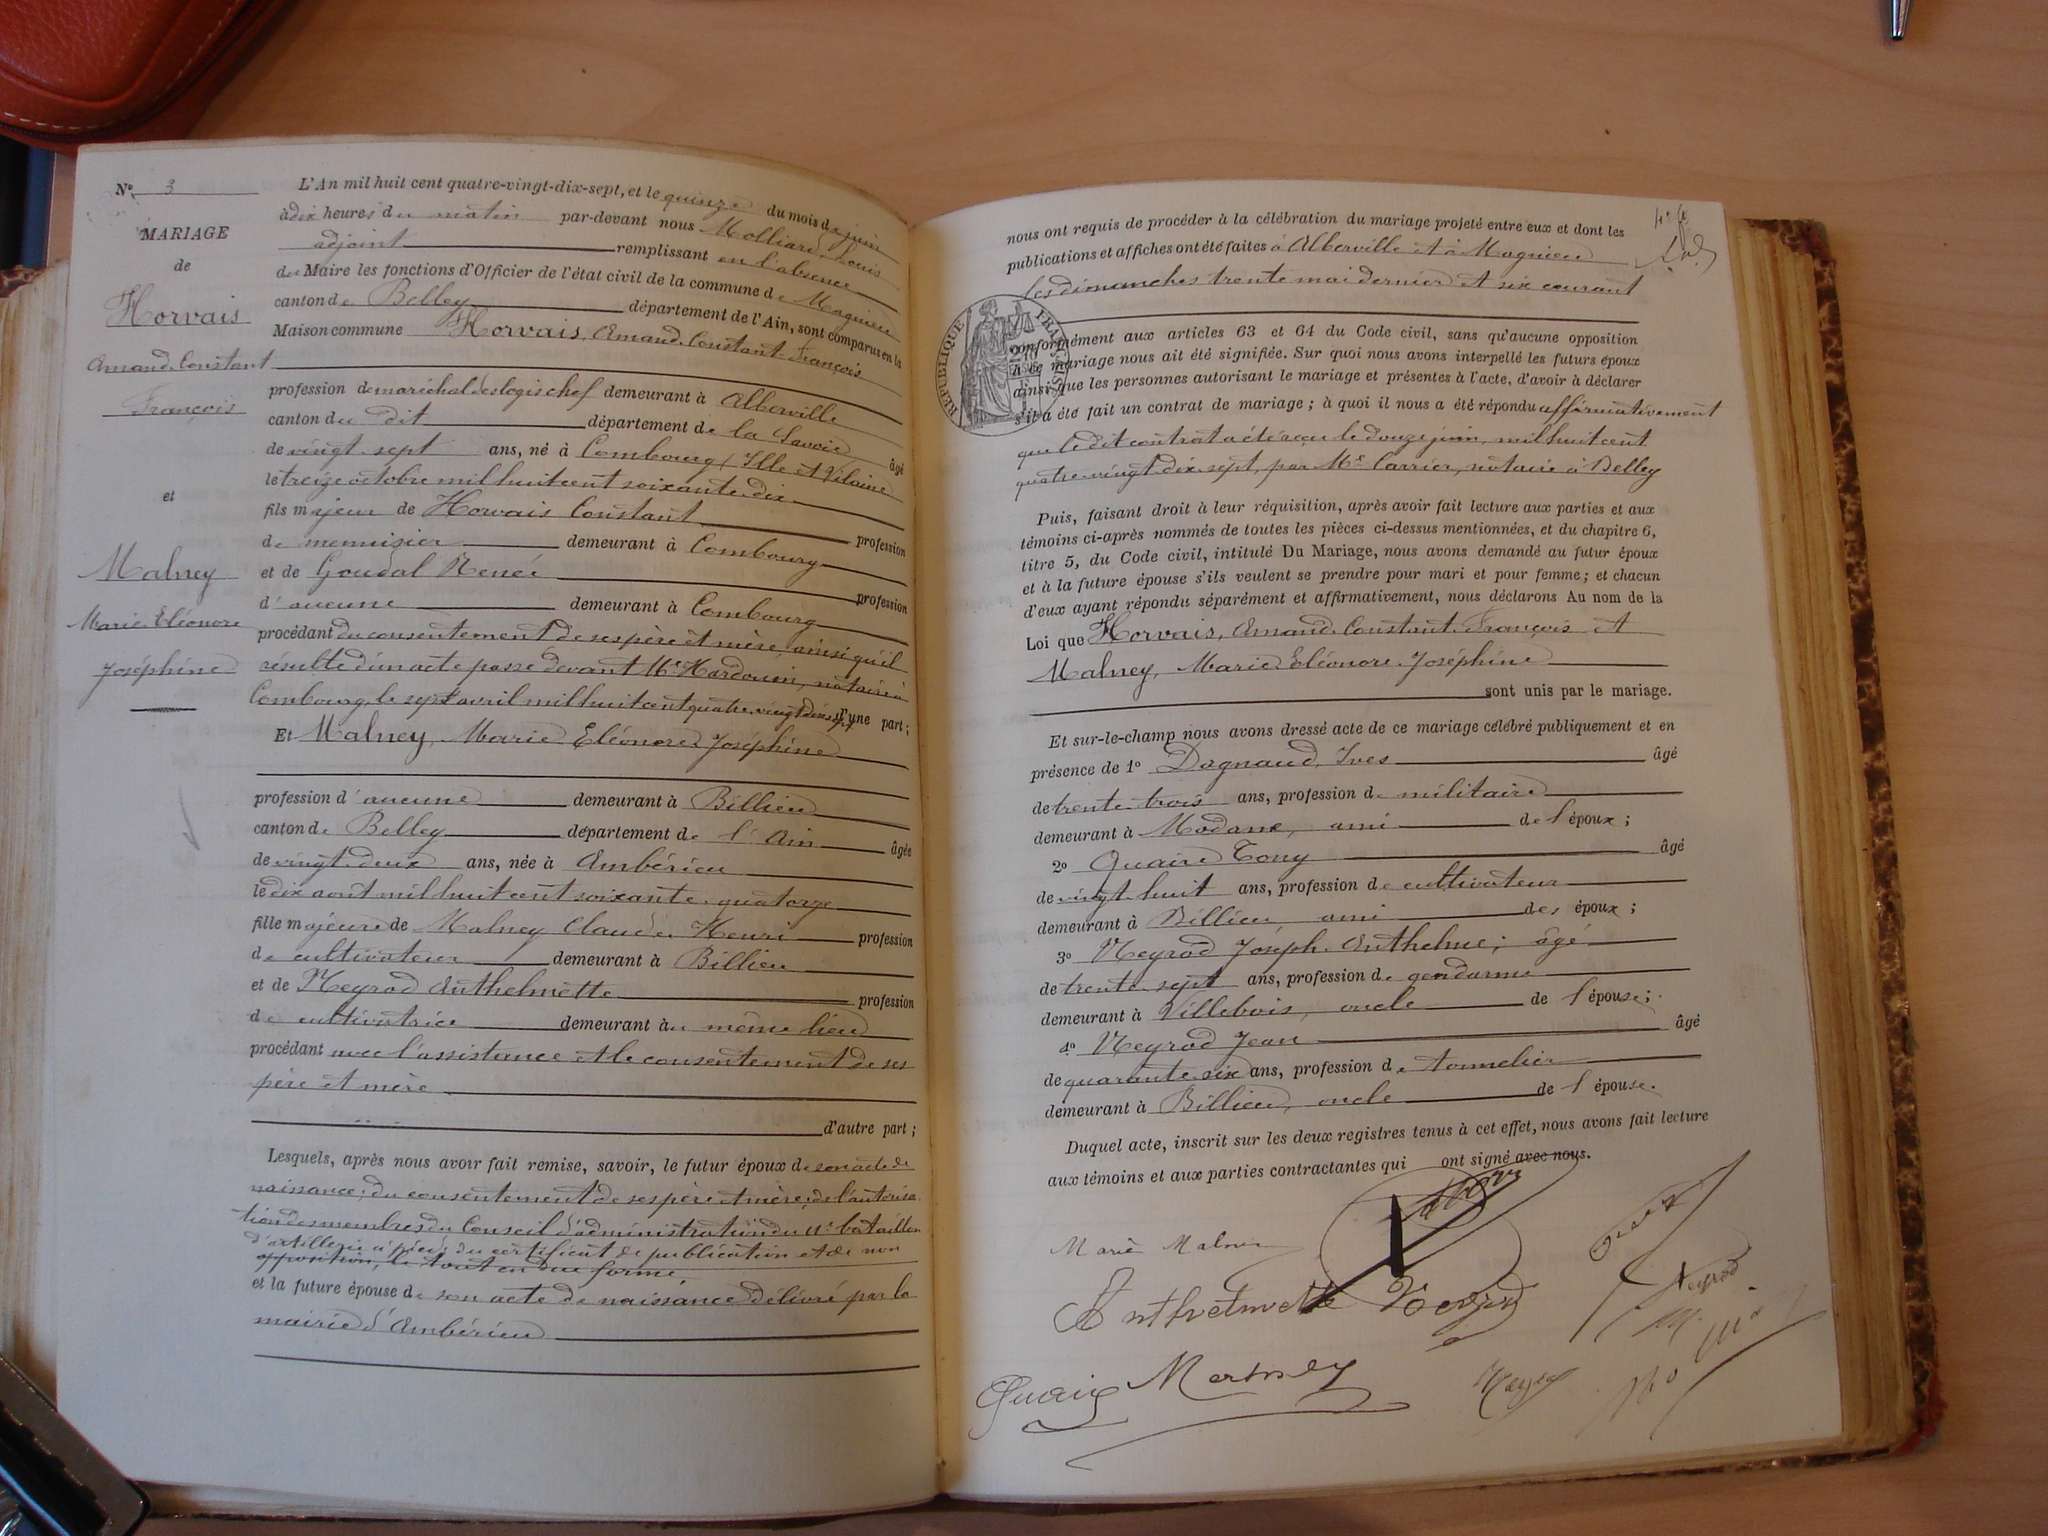 N° 3
MARIAGE
de
Horvais
Amand Constant
François
et
Malney
Marie Eléonore
Joséphine
L'An mil huit cent quatre-vingt-dix-sept, et le quinze du mois de juin
à dix heures du matin par-devant nous Molliard Louis
adjoint remplissant en l'absence
du Maire les fonctions d'Officier de l'état civil de la commune de Magnieu
canton de Belley département de l'Ain, sont comparus en la
Maison commune Horvais, Amand Constant François
profession de maréchal des logis chef demeurant à Alberville
canton du dit département de la Savoie âgé
de vingt sept ans, né à Combourg (Ille et Vilaine
le treize octobre mil huit cent soixante dix
fils majeur de Horvais Constant profession
de menuisier demeurant à Combourg
et de Goudal Renée profession
d'aucune demeurant à Combourg
procédant du consentement de ses père et mère, ainsi qu'il
résulte d'un acte passé devant Me Hardouin, notaire à
Combourg, le sept avril mil huit cent quatre vingt dix sept d'une part ;
Et Malney, Marie Eléonore Joséphine
profession d'aucune demeurant à Billieu
canton de Belley département de l'Ain âgée
de vingt deux ans, née à Ambérieu
le dix août mil huit cent soixante quatorze
fille majeure de Malney Claude Henri profession
de cultivateur demeurant à Billieu
et de Neyrod Anthelmette profession
de cultivatrice demeurant au même lieu
procédant avec l'assistance et le consentement de ses
père et mère
d'autre part ;
Lesquels, après nous avoir fait remise, savoir, le futur époux de son acte de
naissance ; du consentement de ses père et mère ; de l'autorisa
tion des membres du Conseil d'administration du 11e bataillon
d'artillerie à pied ; du certificat de publication et de non
opposition, le tout en due forme
et la future épouse de son acte de naissance délivré par la
mairie d'Ambérieu
nous ont requis de procéder à la célébration du mariage projeté entre eux et dont les
publications et affiches ont été faites à Alberville et à Magnieu
les dimanches trente mai dernier et six courant
RÉPUBLIQUE FRANÇAISE
conformément aux articles 63 et 64 du Code civil, sans qu'aucune opposition
à ce mariage nous ait été signifiée. Sur quoi nous avons interpellé les futurs époux
ainsi que les personnes autorisant le mariage et présentes à l'acte, d'avoir à déclarer
s'il a été fait un contrat de mariage ; à quoi il nous a été répondu affirmativement
que le dit contrat a été reçu le douze juin, mil huit cent
quatre-vingt dix-sept, par Me Carrier, notaire à Belley
Puis, faisant droit à leur réquisition, après avoir fait lecture aux parties et aux
témoins ci-après nommés de toutes les pièces ci-dessus mentionnées, et du chapitre 6,
titre 5, du Code civil, intitulé Du Mariage, nous avons demandé au futur époux
et à la future épouse s'ils veulent se prendre pour mari et pour femme ; et chacun
d'eux ayant répondu séparément et affirmativement, nous déclarons Au nom de la
Loi que Horvais, Amand Constant François et
Malney, Marie Eléonore Joséphine
sont unis par le mariage.
Et sur-le-champ nous avons dressé acte de ce mariage célébré publiquement et en
présence de 1° Dagnaud, Ives âgé
de trente trois ans, profession de militaire
demeurant à Modane, ami de l'époux ;
2° Quaire Tony âgé
de vingt huit ans, profession de cultivateur
demeurant à Billieu, ami des époux ;
3° Neyrod Joseph Anthelme ; âgé
de trente sept ans, profession de gendarme
demeurant à Villebois, oncle de l'épouse ;
4° Neyrod Jean âgé
de quarante six ans, profession de tonnelier
demeurant à Billieu, oncle de l'épouse.
Duquel acte, inscrit sur les deux registres tenus à cet effet, nous avons fait lecture
aux témoins et aux parties contractantes qui ont signé avec nous.
Marie Malney
Anthelmette Neyrod
Neyrod
Quaire Malney